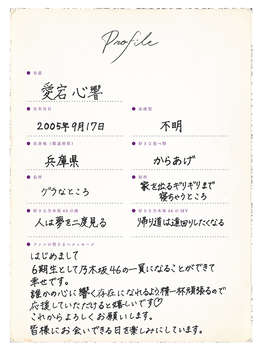 Profile
名前
愛宕 心響
生年月日
2005年9月17日
血液型
不明
出身地（都道府県）
兵庫県
好きな食べ物
からあげ
長所
ゲラなところ
短所
家を出るギリギリまで
寝ちゃうところ
好きな乃木坂46の曲
人は夢を二度見る
好きな乃木坂46のMV
帰り道は遠回りしたくなる
ファンの皆さまへメッセージ
はじめまして
6期生として乃木坂46の一員になることができて
幸せです。
誰かの心に響く存在になれるよう精一杯頑張るので
応援していただけると嬉しいです♡
これからよろしくお願いします。
皆様にお会いできる日を楽しみにしています。